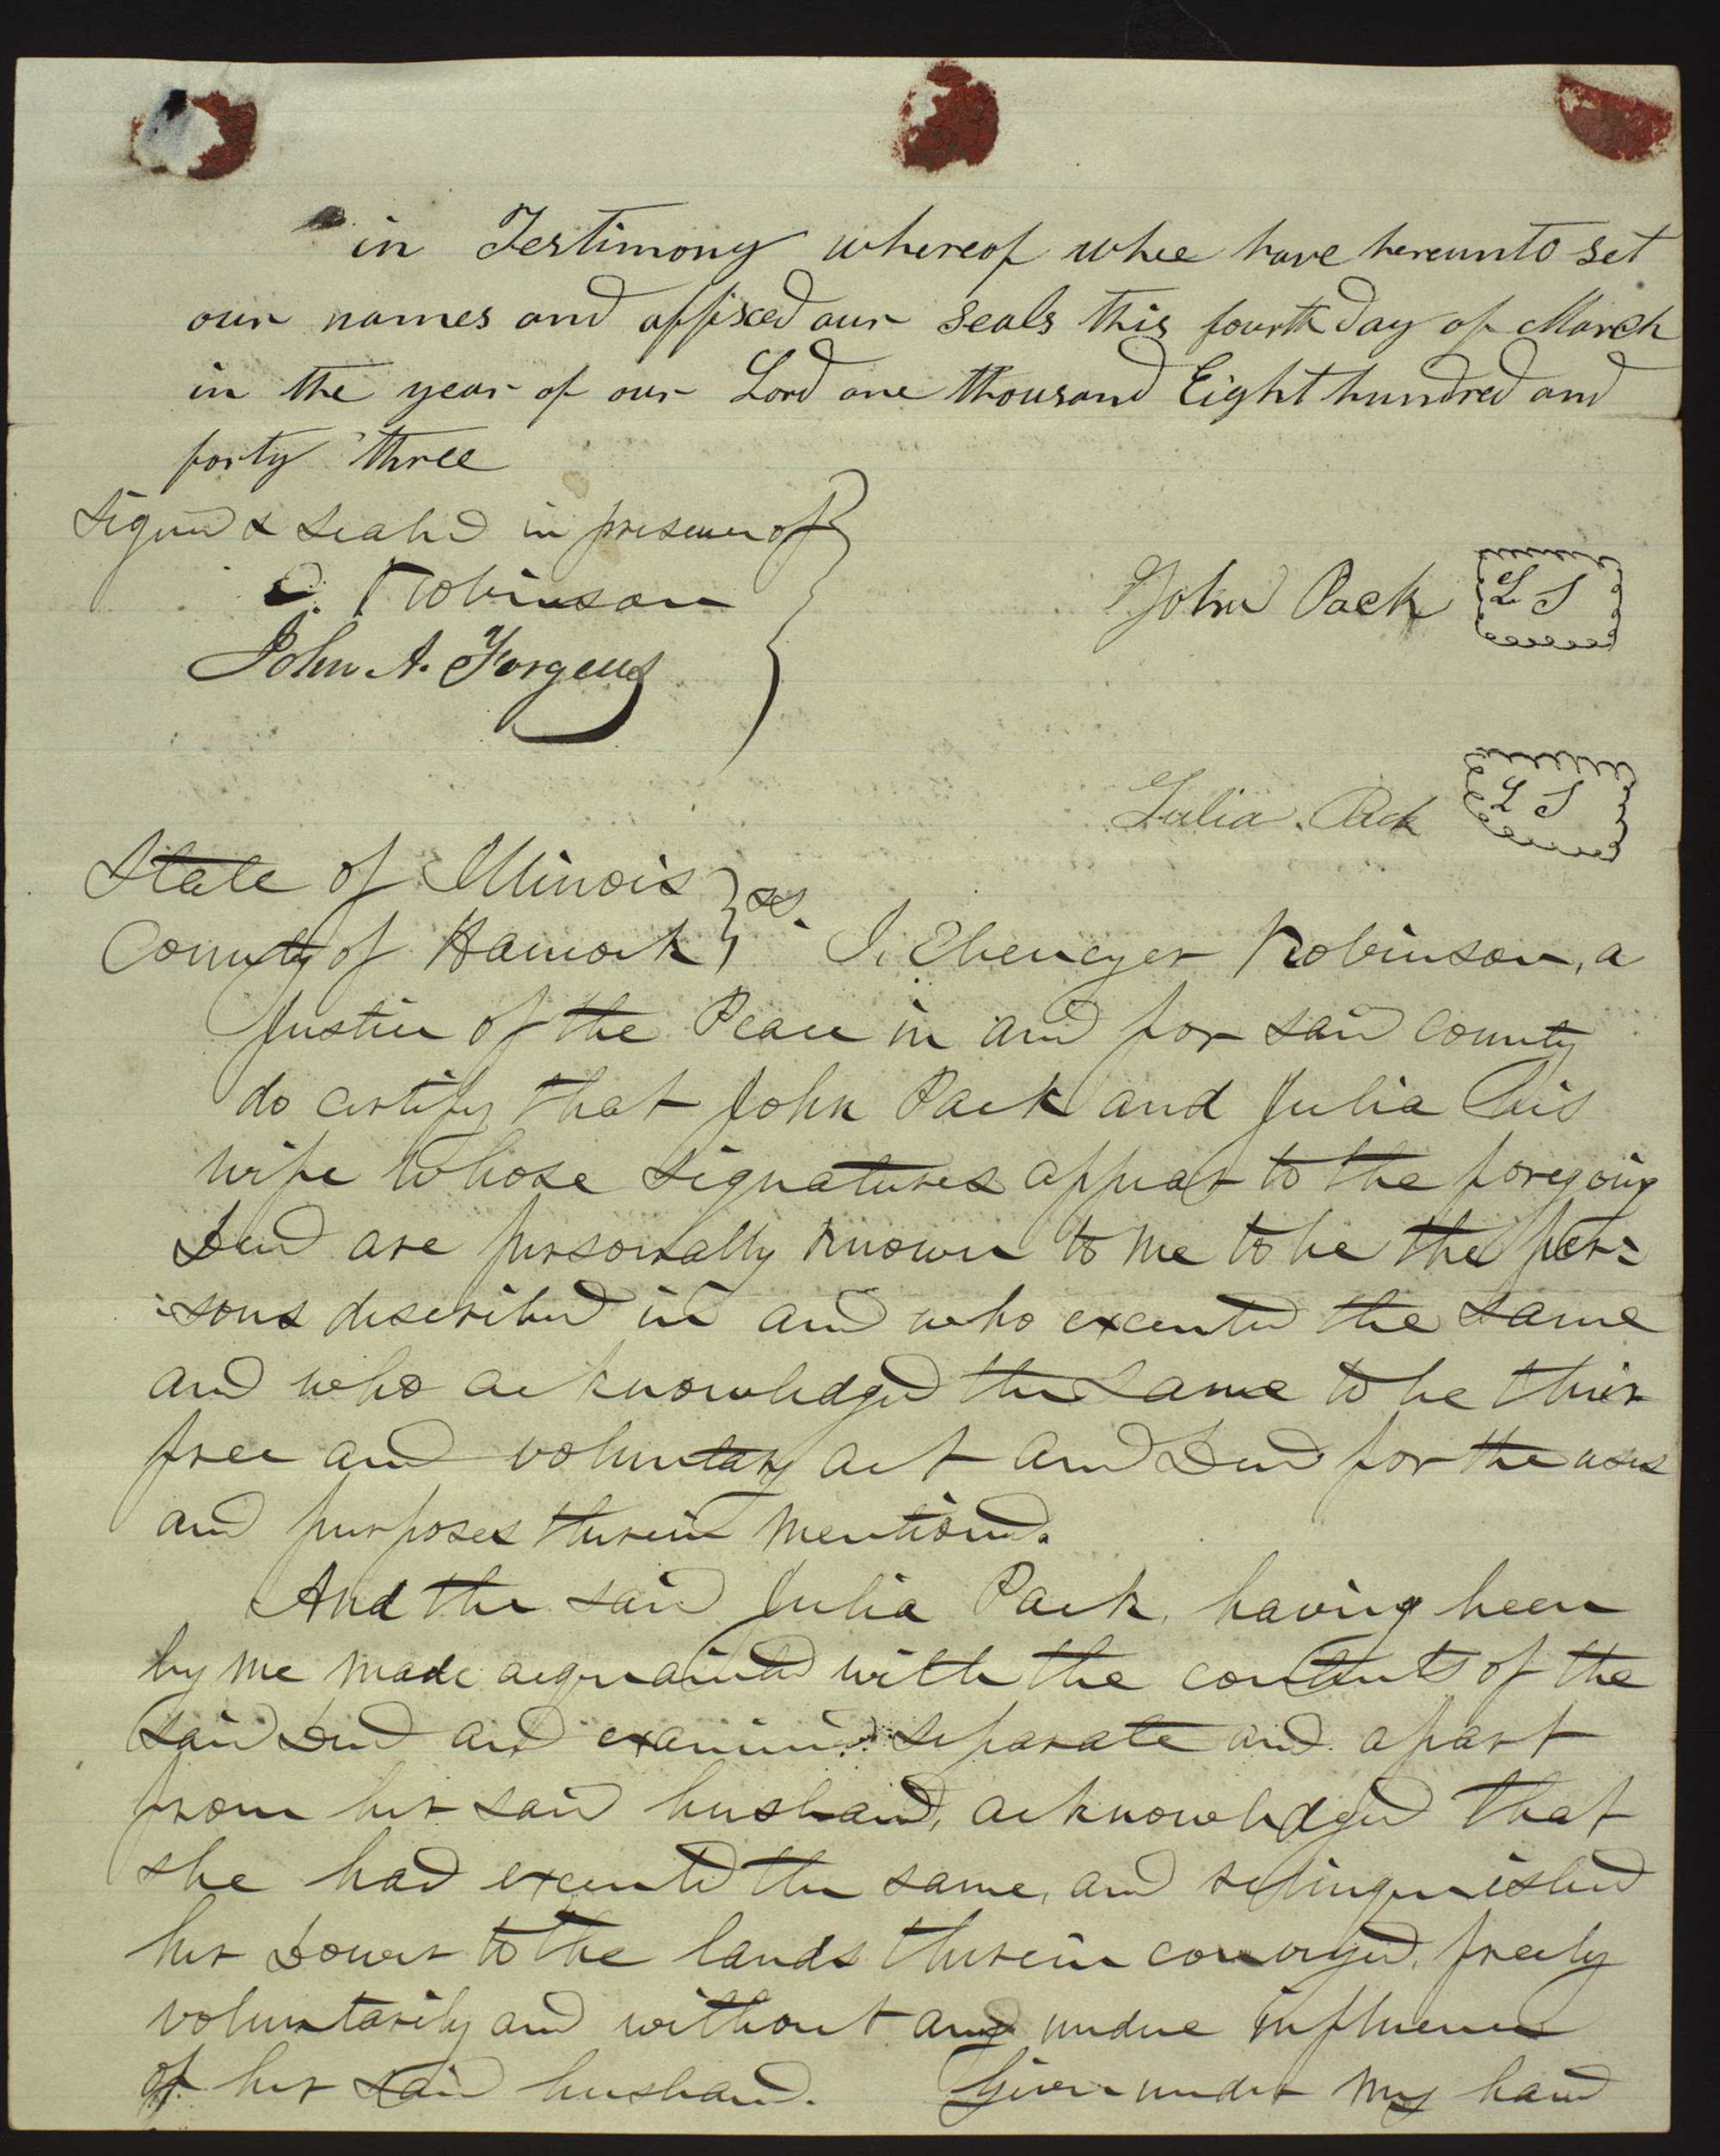 in Testimony whereof whee have hereunto set
our names and affixed our seals this fourth day of March
in the year of our Lord one thousand Eight hundred and
forty three
Signed & Sealed in presence of
E. Robinson
John A. Forgeus
John Pack L S
Julia Pack L S
State of Illinois
County of Hancock ss. I, Ebenezer Robinson, a
Justice of the Peace in and for said County
do certify that John Pack and Julia his
wife whose signatures appear to the foregoing
Deed are personally known to me to be the per=
=sons described in and who executed the same
and who acknowledged the same to be their
free and voluntary act and Deed for the uses
and purposes therein mentioned.
And the said Julia Pack, having been
by me made acquainted with the contents of the
said Deed and examined separate and apart
from her said husband, acknowledged that
she had executed the same, and relinquished
her Dower to the lands therein conveyed, freely
voluntarily and without any undue influence
of her said husband. Given under my hand